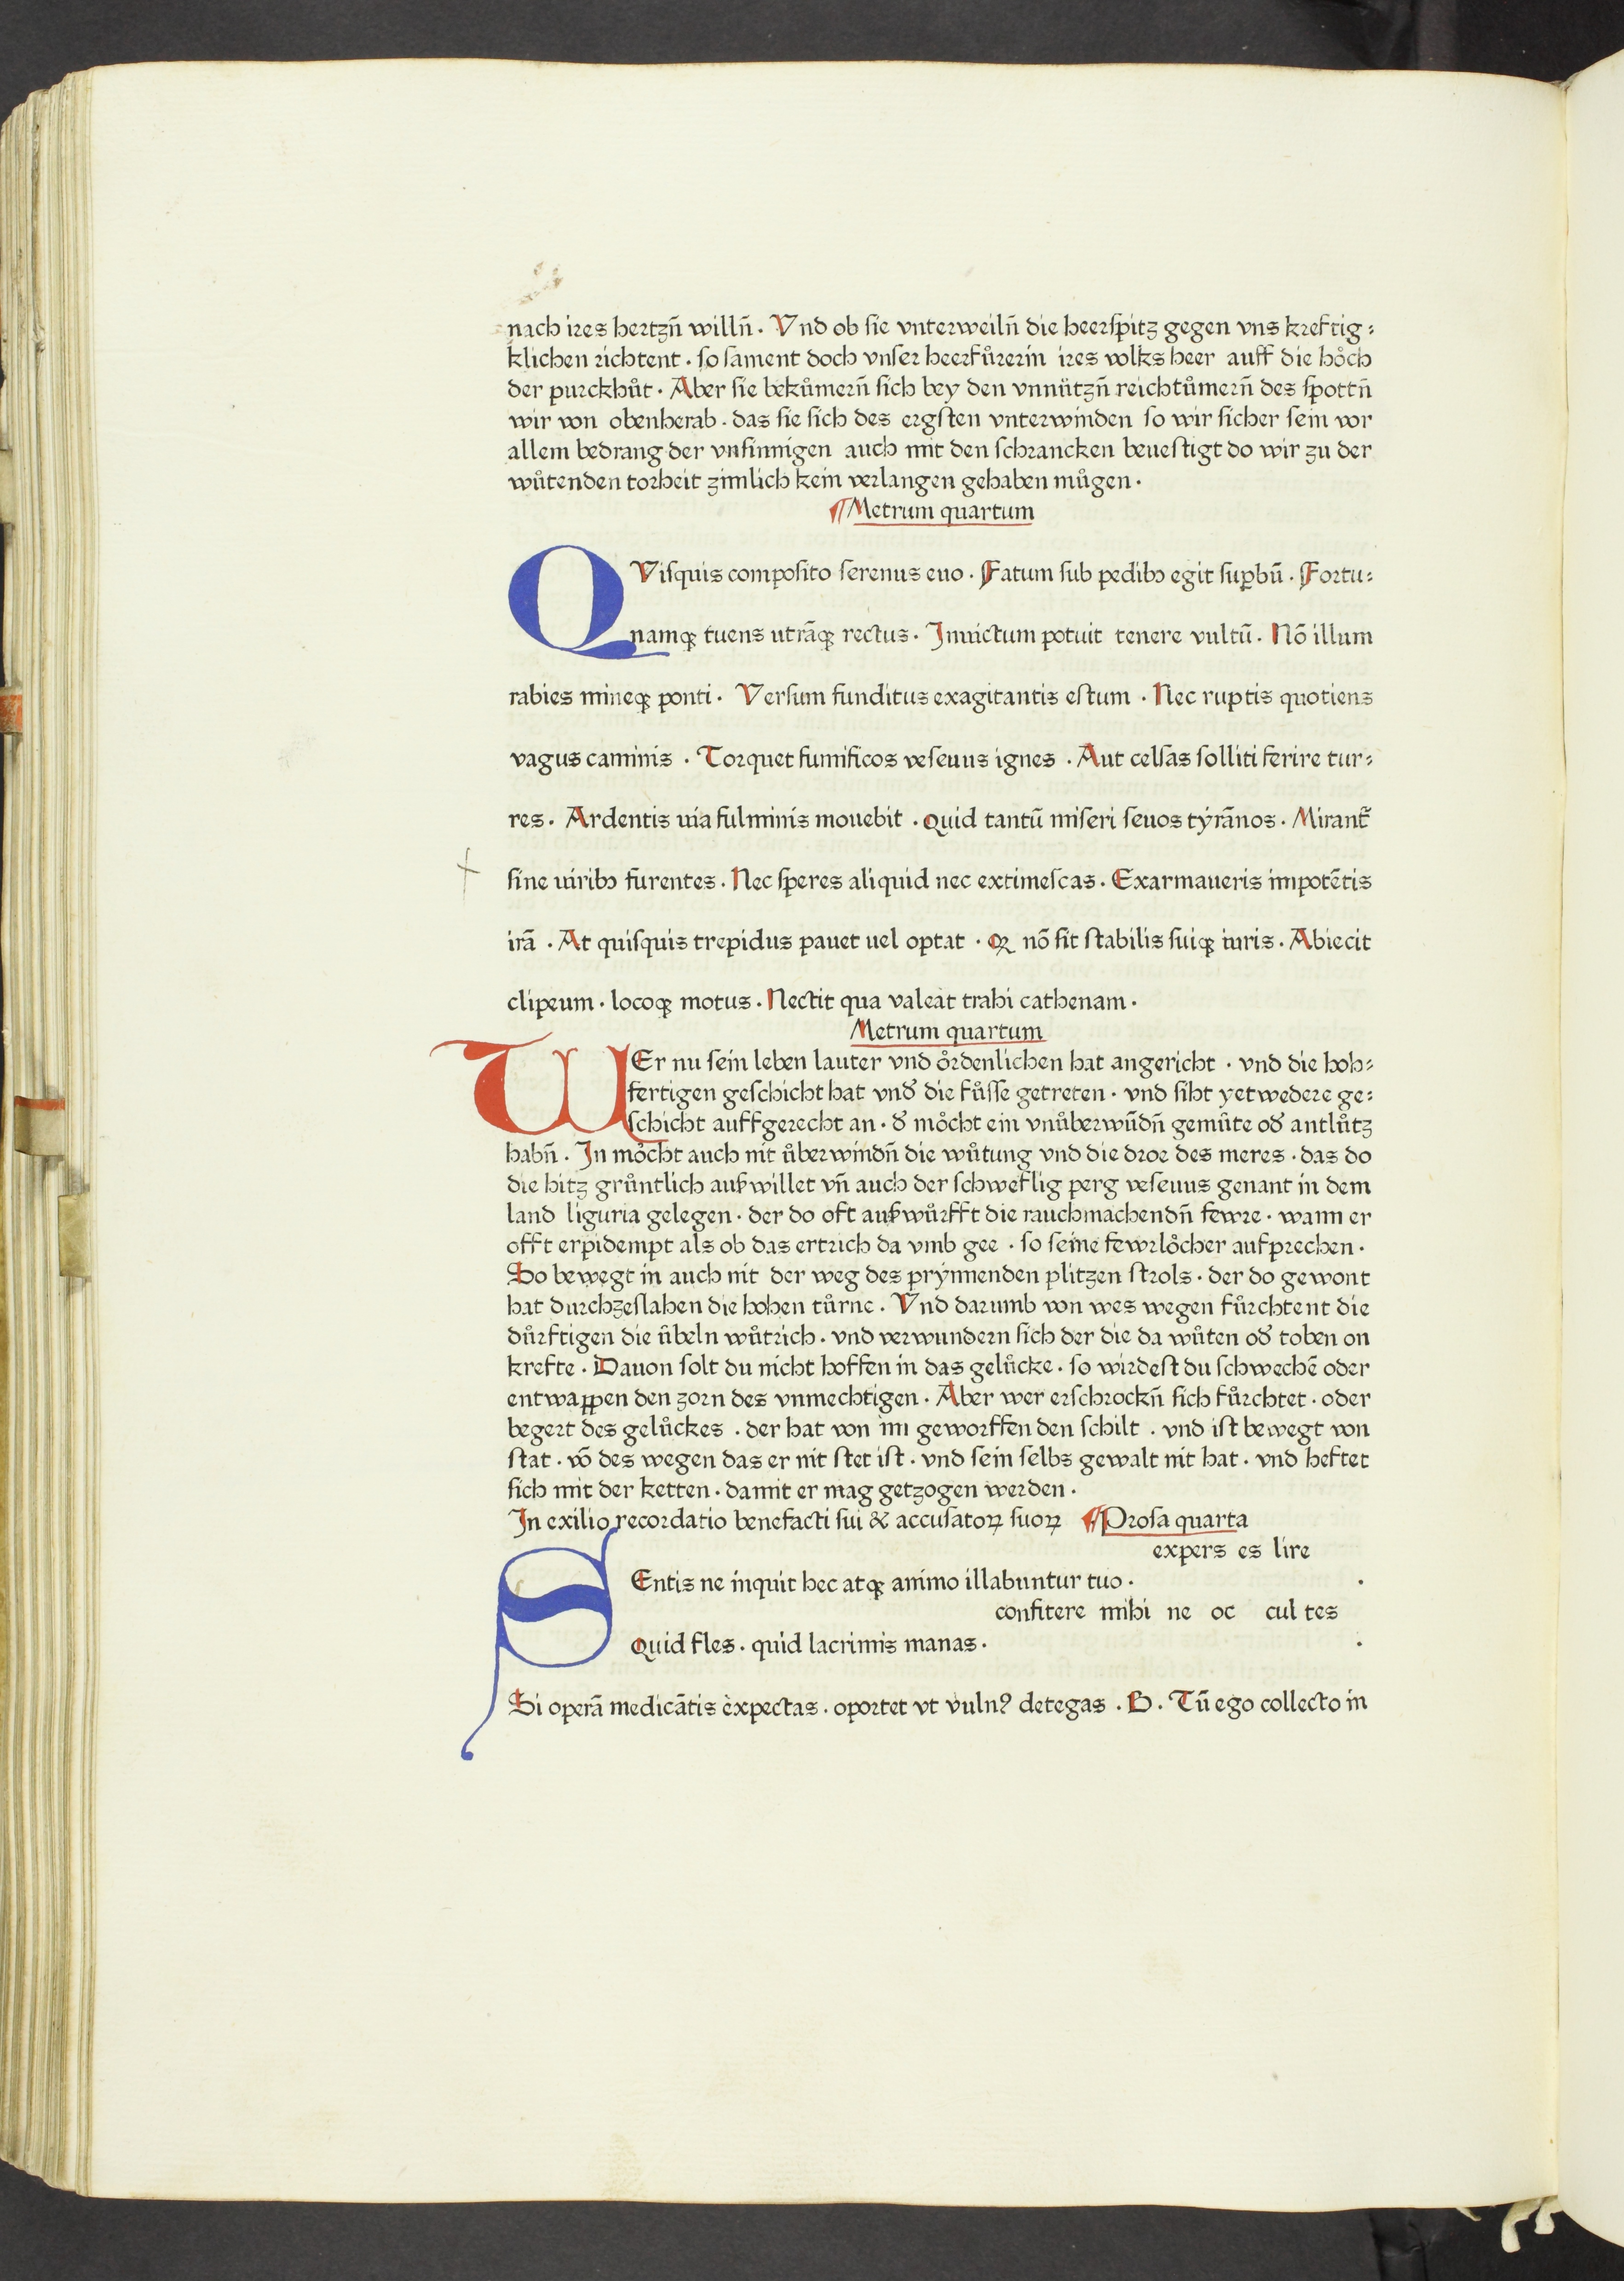 nach ires hertzn̄ willn̄. Vnd ob sie vnterweiln̄ die heerspitz gegen vns kreftig⸗
klichen richtent. so sament doch vnser heerfůrerin ires volks heer auff die hȯch
der purckhůt. Aber sie bekůmern̄ sich bey den vnnützn̄ reichtůmern̄ des spottn̄
wir von obenherab. das sie sich des ergsten vnterwinden so wir sicher sein vor
allem bedrang der vnsinnigen auch mit den schrancken beuestigt do wir zu der
wůtenden torheit zimlich kein verlangen gehaben můgen.
¶Metrum quartum
QVisquis composito serenus euo. Fatum sub pedibꝫ egit suꝑbū. Fortu⸗
namqꝫ tuens utrāqꝫ rectus. Inuictum potuit tenere vultū. Nō illum
rabies mineqꝫ ponti. Versum funditus exagitantis estum. Nec ruptis quotiens
vagus caminis. Torquet fumificos veseuus ignes. Aut celsas solliti ferire tur⸗
res. Ardentis uia fulminis mouebit. Quid tantū miseri seuos tyrānos. Mirant᷑
sine uiribꝫ furentes. Nec speres aliquid nec extimescas. Exarmaueris impotētis
irā. At quisquis trepidus pauet uel optat. Qꝫ nō sit stabilis suiqꝫ iuris. Abiecit
clipeum. locoqꝫ motus. Nectit qua valeat trahi cathenam.
Metrum quartum
WEr nu sein leben lauter vnd ȯrdenlichen hat angericht. vnd die hoh⸗
fertigen geschicht hat vnđ die fůsse getreten. vnd siht yetwedere ge⸗
schicht auffgerecht an. đ mȯcht ein vnůberwūdn̄ gemůte ođ antlůtz
habn̄. In mȯcht auch nit ůberwindn̄ die wůtung vnd die droe des meres. das do
die hitz grůntlich außwillet vn̄ auch der schweflig perg veseuus genant in dem
land liguria gelegen. der do oft außwůrfft die rauchmachendn̄ fewre. wann er
offt erpidempt als ob das ertrich da vmb gee. so seine fewrlȯcher aufprechen.
So bewegt in auch nit der weg des prynnenden plitzen strols. der do gewont
hat durchzeslahen die hohen tůrne. Vnd darumb von wes wegen fůrchtent die
důrftigen die ůbeln wůtrich. vnd verwundern sich der die da wůten ođ toben on
krefte. Dauon solt du nicht hoffen in das gelůcke. so wirdest du schwechē oder
entwappen den zorn des vnmechtigen. Aber wer erschrockn̄ sich fůrchtet. oder
begert des gelůckes. der hat von im geworffen den schilt. vnd ist bewegt von
stat. vō des wegen das er nit stet ist. vnd sein selbs gewalt nit hat. vnd heftet
sich mit der ketten. damit er mag getzogen werden.
In exilio recordatio benefacti sui & accusatoꝝ suoꝝ ¶Prosa quarta
expers es lire
SEntis ne inquit hec atqꝫ animo illabuntur tuo. .
confitere mihi ne oc cul tes
Quid fles. quid lacrimis manas. .
Si operā medicātis expectas. oportet vt vulnꝰ detegas. B. Tū ego collecto in